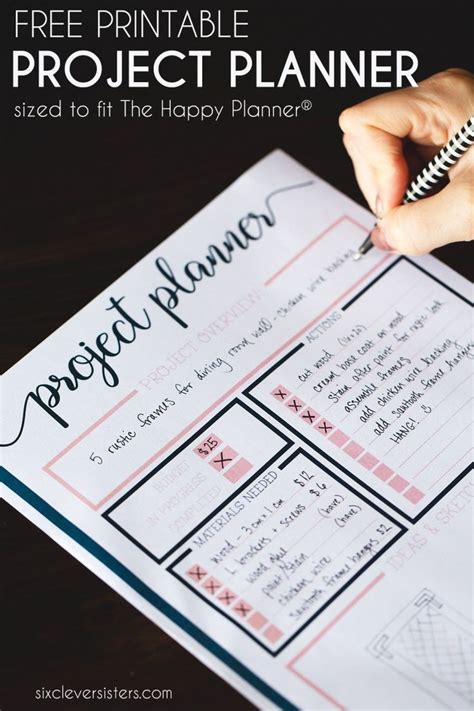 FREE PRINTABLE
PROJECT PLANNER
sized to fit The Happy Planner®
project planner
PROJECT OVERVIEW
5 rustic frames for dining room wall - chicken wire backing
BUDGET $25
IN PROGRESS X
COMPLETED
MATERIALS NEEDED
wood - 3cm x 1cm $12
L brackets + screws $6
wood glue (have)
paint/stain (have)
chicken wire (have)
sawtooth frame hangers $2
ACTIONS
cut wood (16x20)
cream base coat on wood
stain after paint for rustic look
assemble frames
add chicken wire backing
add sawtooth frame hangers
HANG! :)
IDEAS & SKET
sixcleversisters.com